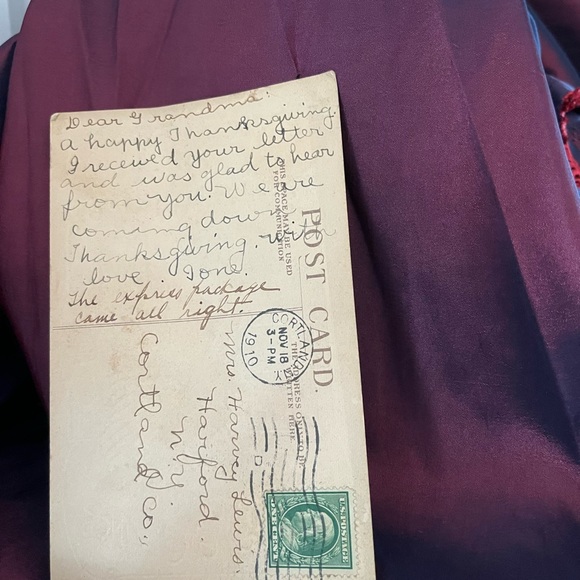 Dear Grandma:
A happy Thanksgiving.
I received your letter
and was glad to hear
from you. We are
coming down
Thanksgiving. with
love Ione.
The express package
came all right.
THIS SPACE MAY BE USED
FOR COMMUNICATION
POST CARD.
THE ADDRESS ONLY TO BE
WRITTEN HERE
CORTLAND
NOV 18
3-PM
1910
N.Y.
Mrs. Harvey Lewis.
Harford.
N.Y.
Cortland Co.,
U.S. POSTAGE
ONE CENT